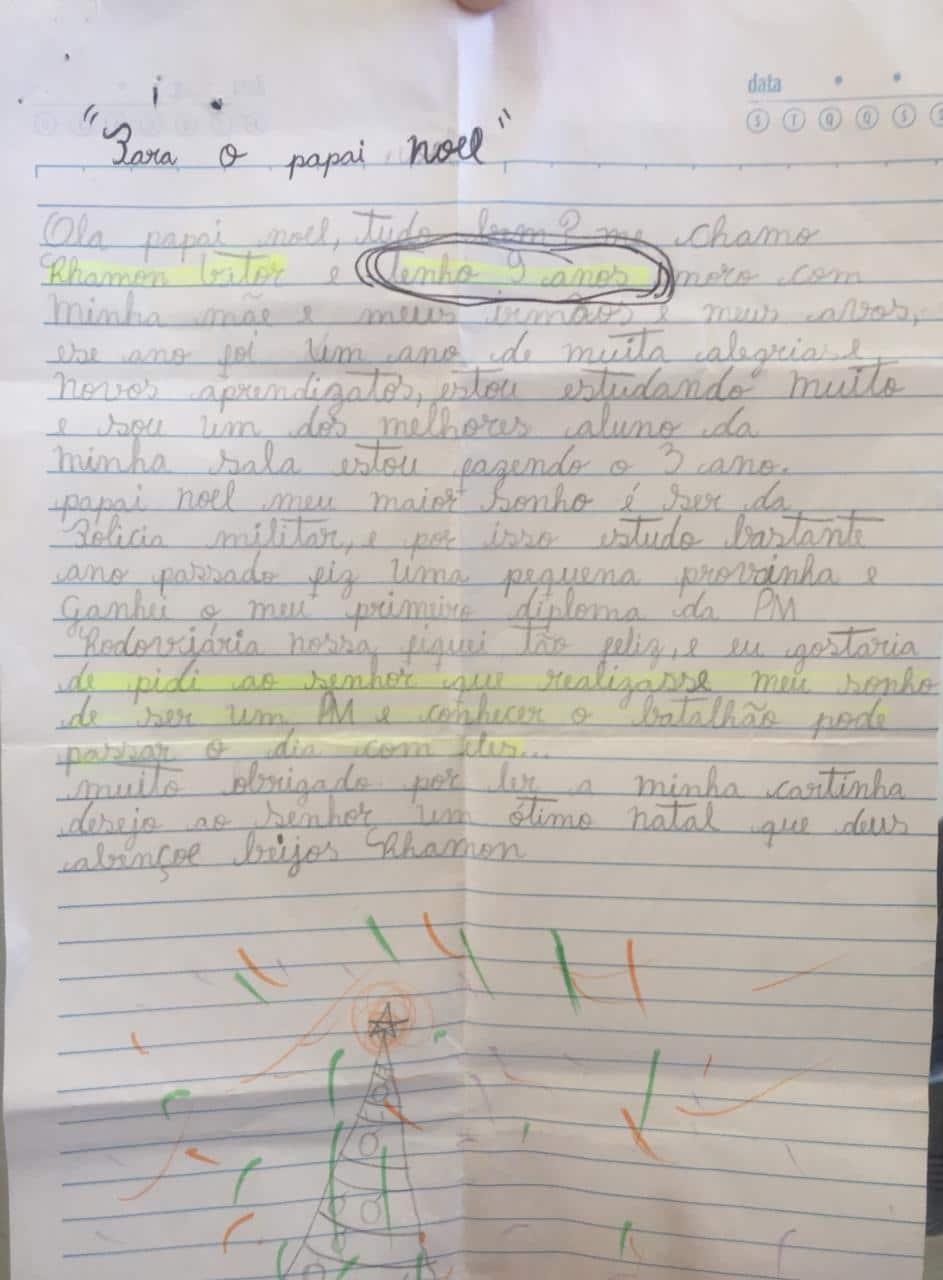 data
S T Q Q S S
"Para o papai noel"
Ola papai noel, tudo bem? me chamo
Rhamon vitor e tenho 9 anos moro com
minha mãe e meus irmãos e meus avos,
ese ano foi um ano de muita alegria e
novos aprendizatos, estou estudando muito
e sou um dos melhores aluno da
minha sala estou fazendo o 3 ano.
papai noel meu maior sonho é ser da
Polícia militar, e por isso estudo bastante
ano passado fiz uma pequena provinha e
Ganhei o meu primeiro diploma da PM
Rodoviária nossa fiquei tão feliz, e eu gostaria
de pidi ao senhor que realizasse meu sonho
de ser um PM e conhecer o batalhão pode
passar o dia com eles...
muito obrigado por ler a minha cartinha
desejo ao senhor um ótimo natal que deus
abençoe beijos Rhamon